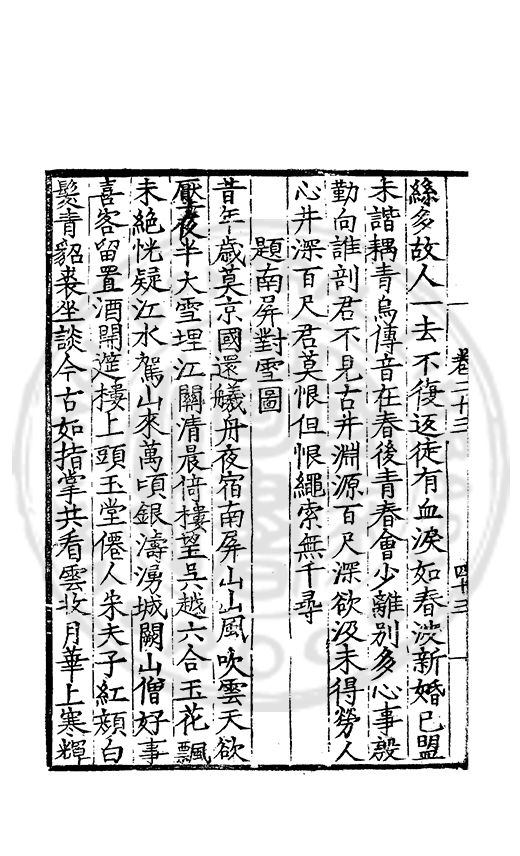 卷二十三
四十三
絲多故人一去不復返徒有血淚如春淡新婚已盟
未諧耦青鳥傳音在春後青春會少離別多心事殷
勤向誰剖君不見古井淵源百尺深欲汲未得勞人
心井深百尺君莫恨但恨繩索無千尋
題南屏對雪圖
昔年歲莫京國還艤舟夜宿南屏山山風吹雲天欲
壓夜半大雪埋江關清晨倚樓望吳越六合玉花飄
未絕恍疑江水駕山來萬頃銀濤湧城闕山僧好事
喜客留置酒開筵樓上頭玉堂僊人宋夫子紅頰白
髮青貂裘坐談今古如指掌共看雲收月華上寒輝